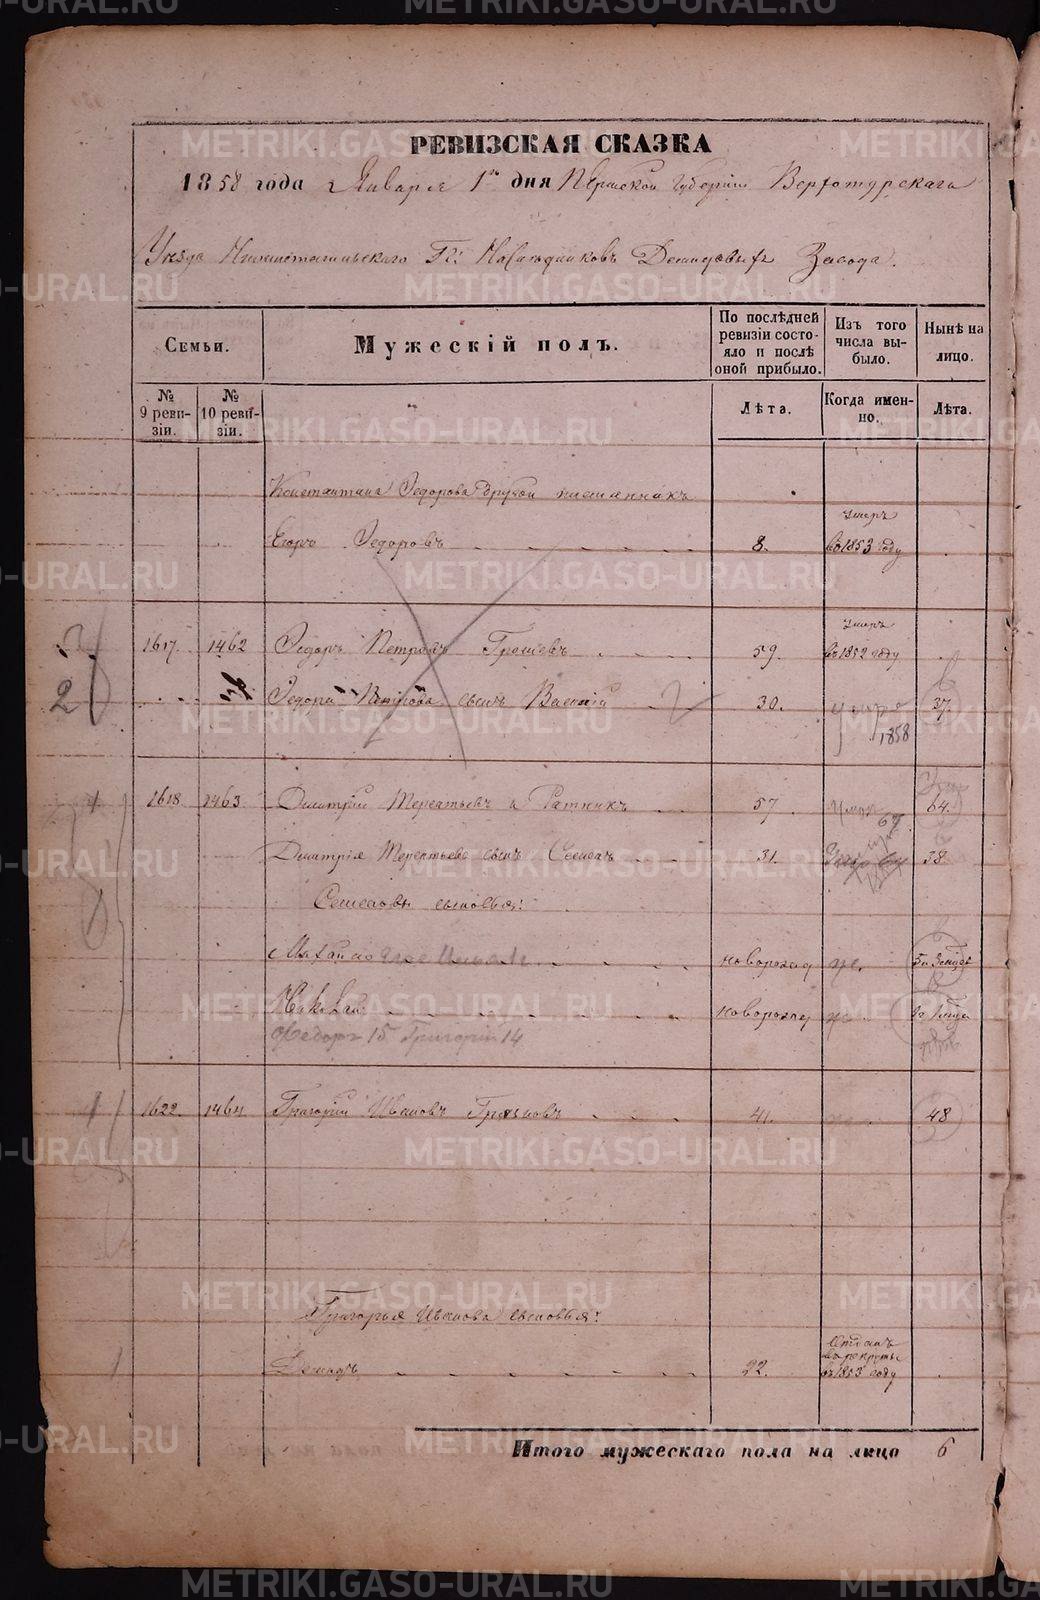 РЕВИЗСКАЯ СКАЗКА
1858 года Января 1го дня Пермской Губерніи Верхотурскаго
Уезда Нижнетагильскаго Гг. Наследниковъ Демидовыхъ Завода.
Семьи.
Мужескій полъ.
По послѣдней ревизіи состо-
яло и послѣ оной прибыло.
Изъ того числа вы-
было.
Нынѣ на лицо.
№ 9 реви-
зіи.
№ 10 реви-
зіи.
Лѣта.
Когда имен-
но.
Лѣта.
Константина Федорова другой племянникъ
умеръ
Егоръ Федоровъ 8. въ 1853 году
умеръ
1617. 1462 Федоръ Петровъ 59. въ 1852 году
2 Федора Петрова сынъ Василій 30. умеръ 37.
1858
1618 1463 Дмитрій Терентьевъ 57 64.
Дмитрія Терентьева сынъ Семенъ 31. 38
Семеновы сыновья:
Михайло новорожд
Николай новорожд
Федоръ 15 Григорій 14
1 1622. 1464 Григорій Ивановъ 41. 48
Григорья Иванова сыновья:
отданъ
въ рекруты
1 Демидъ 22. въ 1853 году
Итого мужескаго пола на лицо 6
METRIKI.GASO-URAL.RU